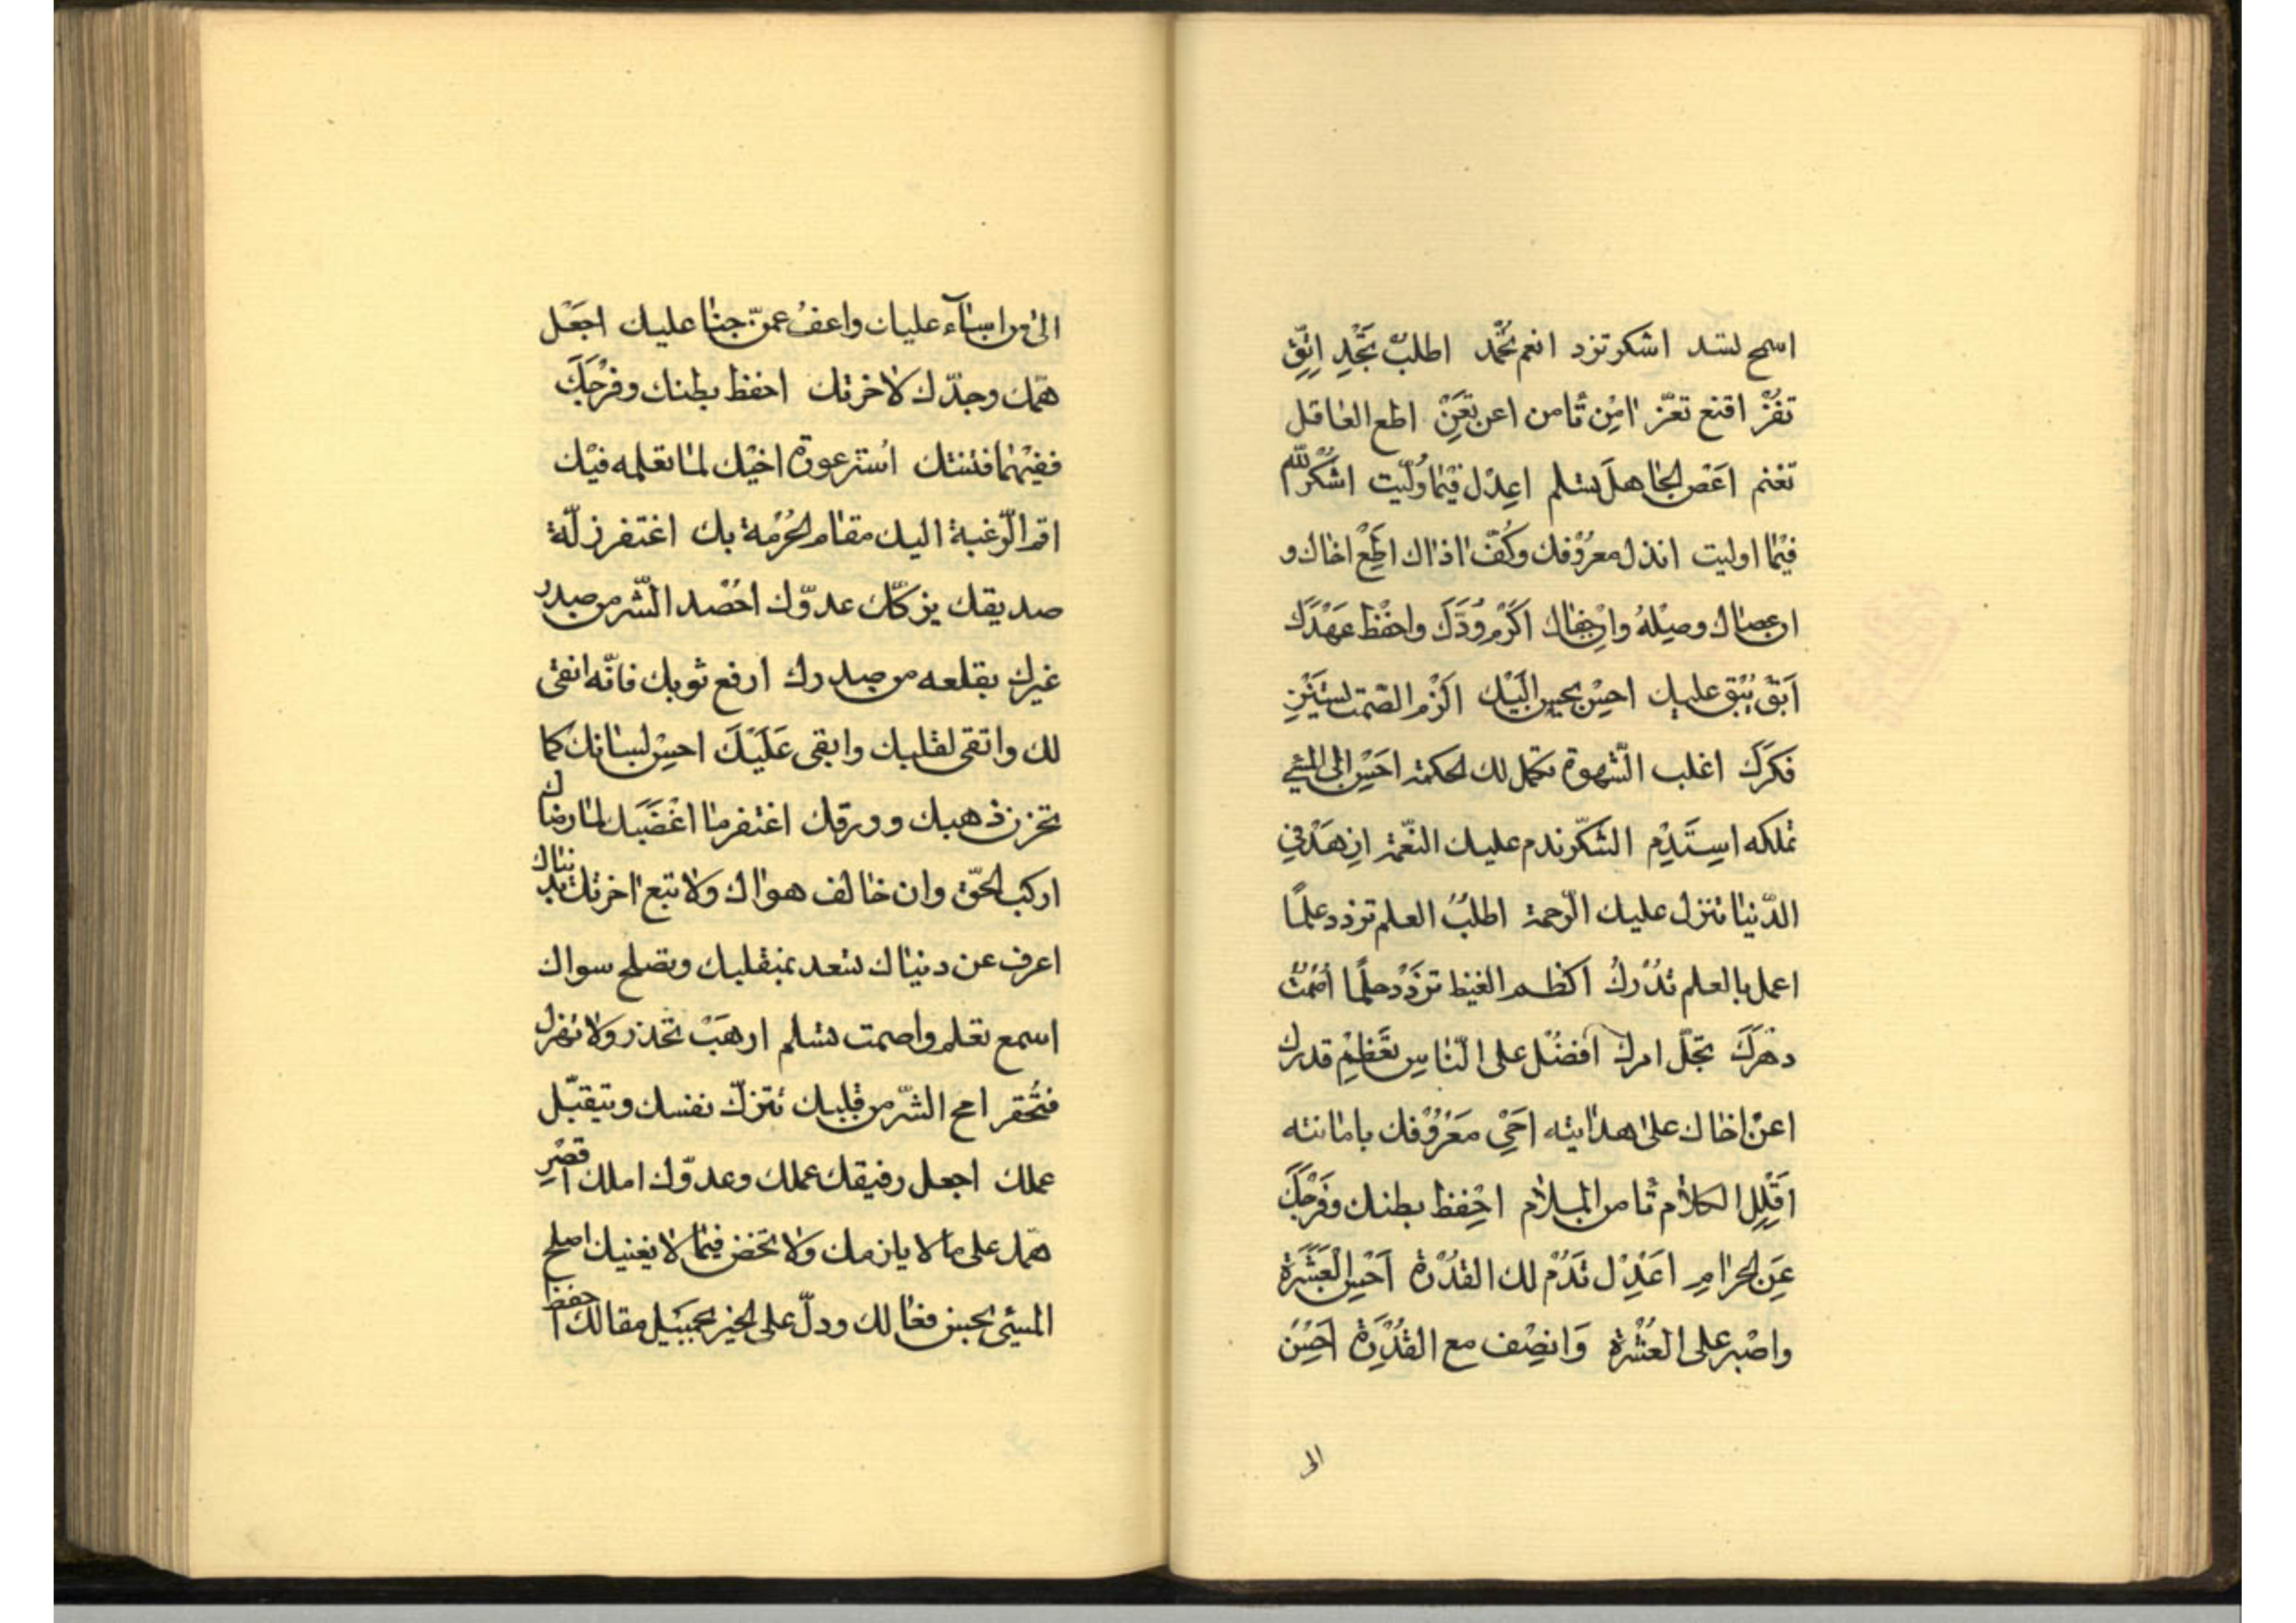 اسمح لسد اشكر تزد انعم تُحْمد اطلبْ تَجْدِ اِتَّقِ
تفُزْ اقنع تعزّ امِنْ تأمن اعن تُعَنْ اطع العاقل
تغنم اَعْصِ الجاهلَ تسلم اعدِل فيْما وُلّيت اشكرْ للّه
فيْما اوليت ابذل معرُوْفك وكُفّ اذاك اَطِعْ اخاك و
ان عصاك وصِلْهُ وانْ جفاك اَكْرِمْ وُدَّكَ واحْفَظْ عَهْدَكَ
اَبْقِ يُبْقَ عليك احسِنْ يحسن اِلَيْك الْزَمِ الصّمت يستَنِرْ
فكرَكَ اغلب الشّهوة تكمل لك الحكمة احْسِنْ الى المسئ
تملكه اِستَدِمِ الشّكر تدم عليك النّعمة ازهَدْ في
الدّنيا تنزل عليك الرّحمة اطلبْ العلم تزدد علمًا
اعمل بالعلم تُدْركْ اكظم الغيظ تزْدَدْ حلمًا اُصْمُتْ
دهْرَكَ تجلّ امرك افضُلْ على النّاس تَعْظمْ قدرك
اعنْ اخاك على هدايته اَحْيِ مَعْرُوْفك باماتته
اَقْلِلِ الكلام تأمن الملام احْفظ بطنك وفَرْجَكَ
عَنِ الحرامِ اعْدِلْ تَدُمْ لك القُدْرة اَحْسِن العِشْرَة
واصْبر على العُسْرة وَانصِف مع القُدْرَة اَحْسِنْ
الى
الى من اسآء عليك واعفُ عمّن جنا عليك اجعَلْ
همّك وجدّك لاخرتك احفظ بطنك وفرْجَكَ
ففيْهما فتنتك اُستر عورة اخيْك لما تعلمه فيْك
اقم الرّغبة اليك مقام الحُرْمة بك اغتفر زلّة
صديقك يزكّك عدوّك احْصُد الشّر من صدر
غيرك بقلعه من صدرك ارفع ثوبك فانّه انقى
لك واتقى لقلبك وابقى عَلَيْكَ احسن لسانك كما
تخزن ذهبك وورقك اغتفر ما اغْضَبَك لما رضاك
اركب الحقّ وان خالف هواك ولا تبع اخرتك بدنياك
اعرف عن دنياك تسعد بمنقلبك وتصلح سواك
اسمع تعلم واصمت تسلم ارهَبْ تحذر ولا تهزل
فتُحْقر امح الشّر من قلبك تتزكّ نفسك ويتقبّل
عملك اجعل رفيقك عملك وعدوّك املك اقصْر
همّك على ما لا يلزمك ولا تخض فيْما لا يغنيك اصلح
المسئ بحسن فعالك ودلّ على الخير بجميل مقالك احفظ